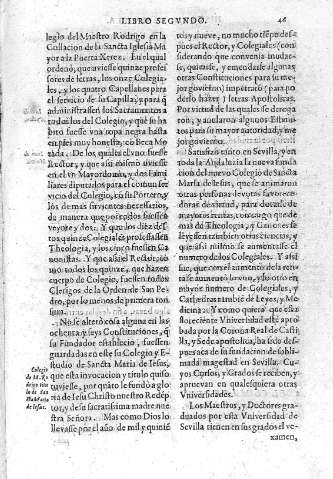 LIBRO SEGVNDO. 46
legio del Maestro Rodrigo en la
Collacion de la Sancta Iglesia Ma
yor a la Puerta Xerez. En el qual
ordenò, que auiesse quinze profes
sores de letras, los onze Colegia-
les, y los quatro Capellanes para
el seruicio de su Capilla, y para q̃
administrassen los Sacramentos a
todos los del Colegio, y que su ha
bito fuesse vna ropa negra hasta
en pies muy honesto, co Beca Mo
rada. De los quales el vno fuesse
Rector, y que assi mismo viuiesse
en el vn Mayordomo, y dos Fami
liares diputados para el comun ser
uicio del Colegio, co su Portero, y
los demas siruientes necessarios,
de manera que por todos fuessen
veyte y dos. Y que los diez des-
tos quinze Colegiales professassen
Theologia, y los cinco fuessen Cano
nistas. Y que assi el Rector, co-
mo todos los quinze, que hazen
cuerpo de Colegio, fuessen todos
Clerigos de la Orden de San Pe-
dro, por lo menos de primera ton
sura.
No se alterò cosa alguna en las
ochenta y seys Constituciones, q̃
su Fundador establecio, fuessen
guardadas en este su Colegio y E-
studio de Sancta Maria de Iesus,
que esta inuocacion y titulo quiso
tuuiesse, por quãto le fundò a glo
ria de Iesu Christo nuestro Redép
tor, y de su sacratissima madre nue
stra Señora. Mas como Dios lo
lleuasse por el año de mil y quinié
Colegio
de M. Ro
drigo titu
lo de San
cta Maria
de Iesus.
tos y nueve, no mucho tiépo des-
pues el Rector, y Colegiales (con
siderando que conuenia mudar-
se, quitarse, y emendarse algunas
otras Constituciones para su me-
jor gouierno) impetrarõ (para po
derlo hazer) letras Apostolicas.
Por virtud de las quales se deroga
ron, y anularon algunos Estatu
tos para su mayor autoridad, y me
jor gouierno.
Satisfizo tanto en Seuilla, y en
toda la Andaluzia la nueua funda
cion del nueuo Colegio de Sancta
Maria de Iesus, que se animaron
otras personas deuotas fauorece-
doras de virtud, para dotarle de
mayores rentas, con cargo que de
mas de Theologos, y Canones se
leyessen tambien otras sciencias, y
que assi mismo se aumentasse el
numero de los Colegiales. Y assi
fue, que con el aumento de la ren-
ta se aumentò lo vno, y lo otro en
mayor numero de Colegiales, y
Cathedras tambié de Leyes, y Me
dicina: Y como quiera que esta
floreciente Vniuersidad està apro
bada por la Corona Real de Casti
lla, y Sede apostolica, ha sido des-
pues aca de su fundacion de subli-
mada magestad en Seuilla. Cu-
yos Cursos, y Grados se reciben, y
aprueuan en qualesquiera otras
Vniuersidades.
Los Maestros, y Doctores gra-
duados por esta Vniuersidad de
Seuilla tienen en sus grados el ve-
xamen,